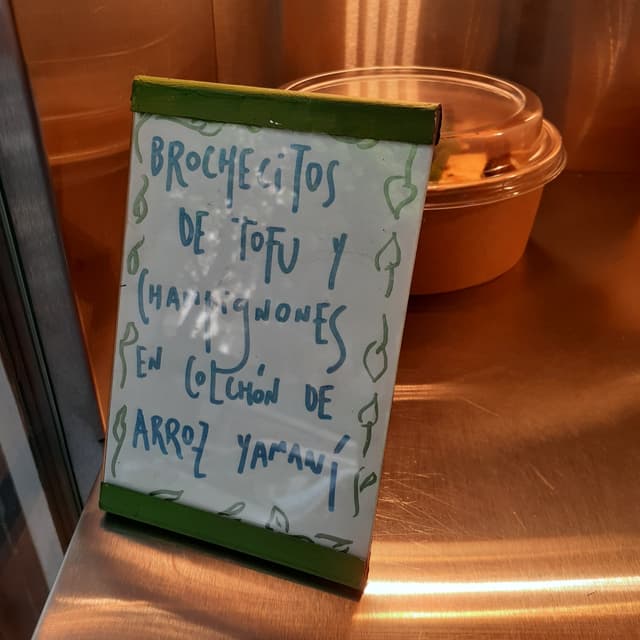 BROCHECITOS
DE TOFU Y
CHAMPIGNONES
EN COLCHÓN DE
ARROZ YAMANÍ